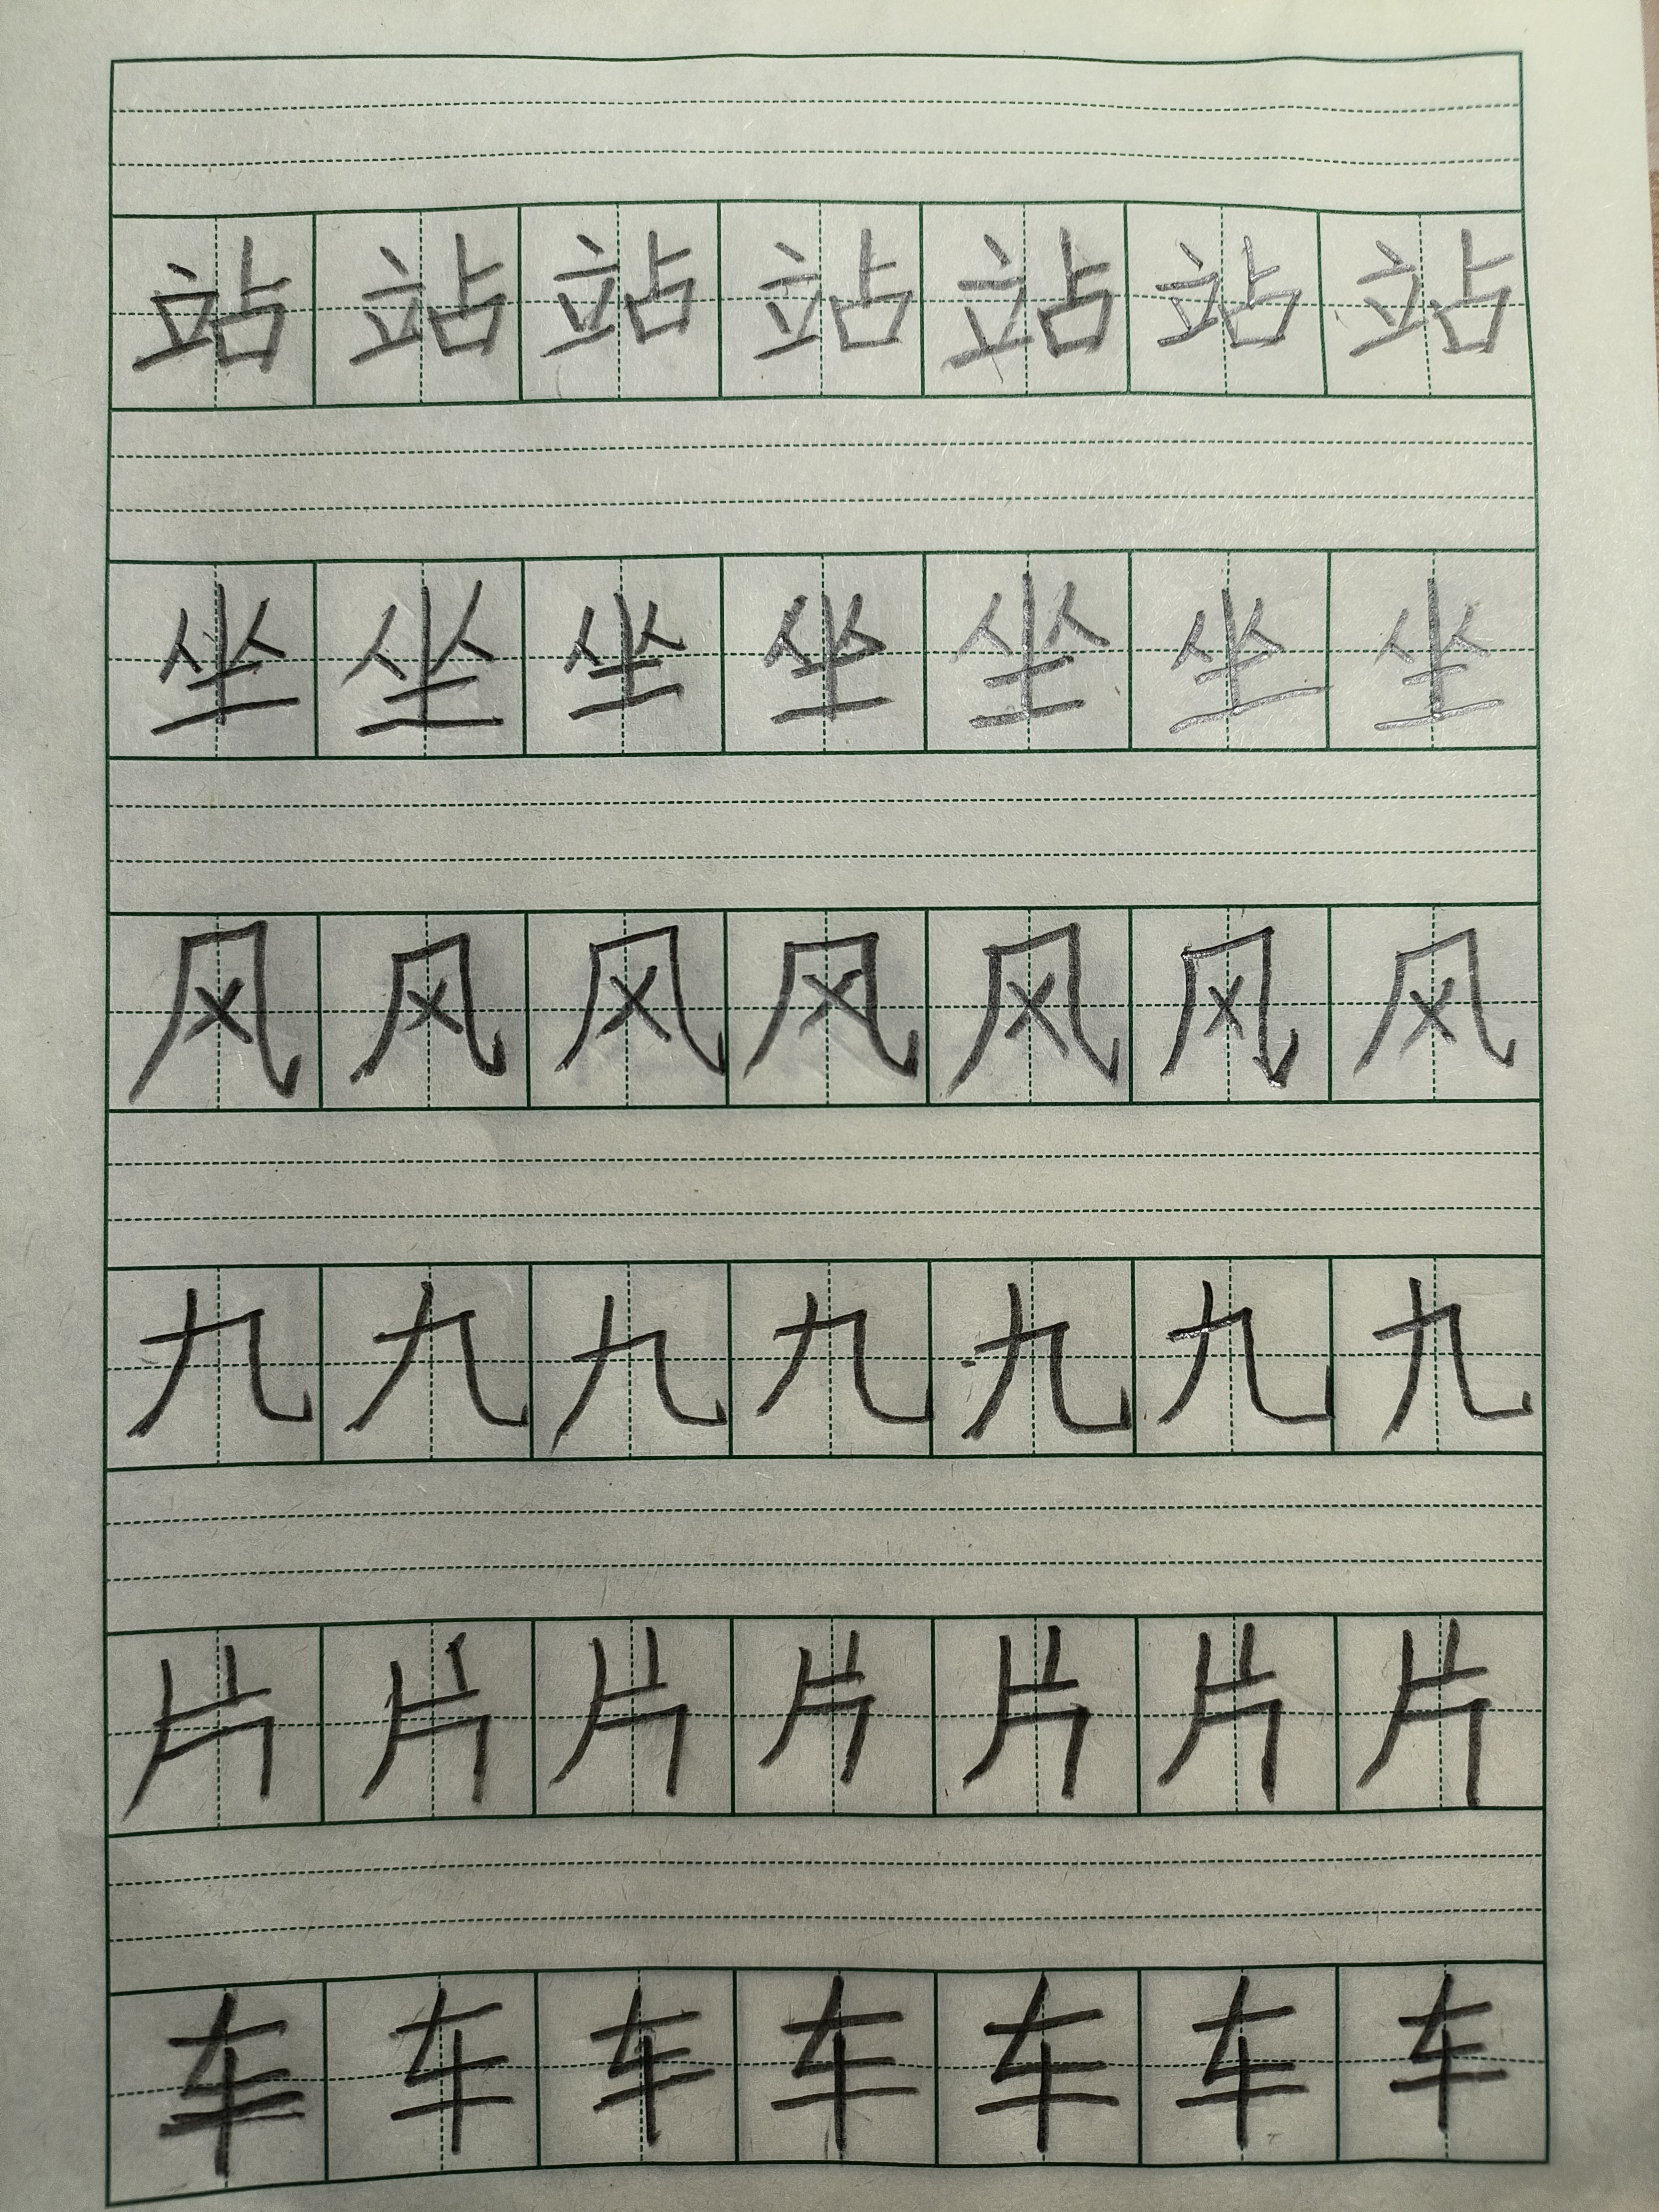 站站站站站站站
坐坐坐坐坐坐坐
风风风风风风风
九九九九九九九
片片片片片片片
车车车车车车车